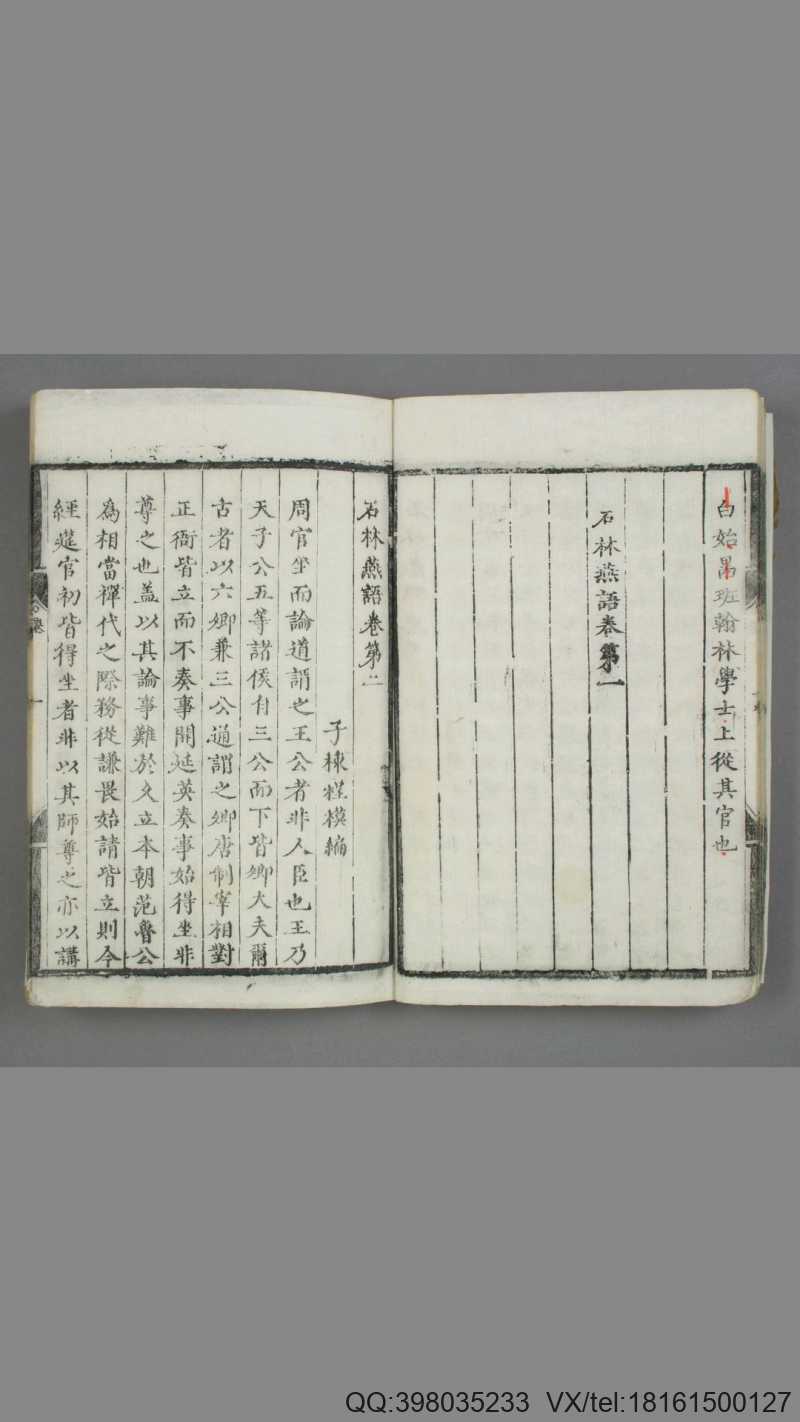 白始昺班翰林學士上從其官也
石林燕語卷第一
石林燕語卷第二
子棟桯模編
周官坐而論道謂之王公者非人臣也王乃
天子公五等諸侯自三公而下皆卿大夫爾
古者以六卿兼三公通謂之卿唐制宰相對
正衙皆立而不奏事開延英奏事始得坐非
尊之也盖以其論事難於久立本朝范魯公
為相當禪代之際務從謙畏始請皆立則今
經筵官初皆得坐者非以其師尊之亦以講
QQ:398035233 VX/tel:18161500127